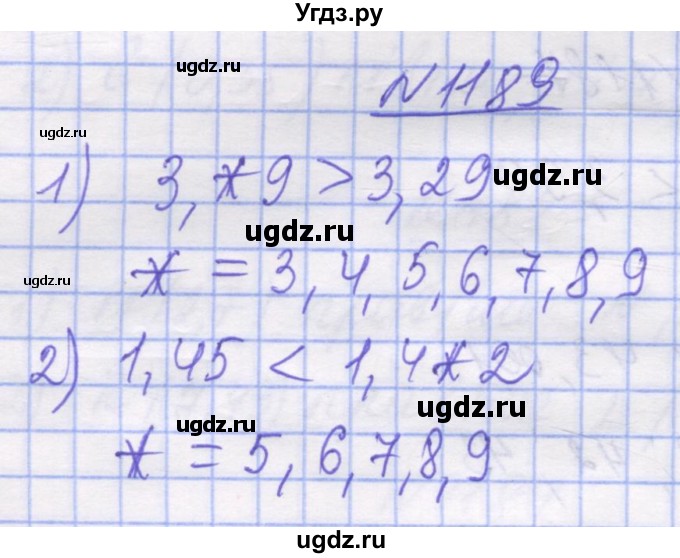 Угдз.ру
ugdz.ru
N1189
ugdz.ru
1) 3,*9 > 3,29
ugdz.ru
ugdz.ru
ugdz.ru
* = 3, 4, 5, 6, 7, 8, 9
2) 1,45 < 1,4*2
ugdz.ru
ugdz.ru
* = 5, 6, 7, 8, 9
ugdz.ru
ugdz.ru